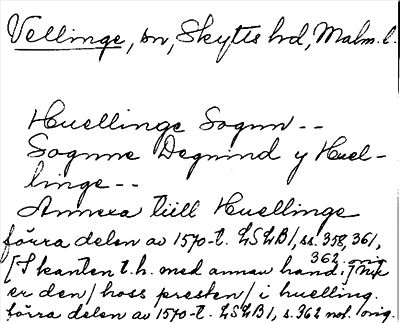 Vellinge, sn, Skytts hd, Malm. l.
Huellinge Sognn --
Sognne Degnind y Huel-
linge--
Annexa till Huellinge
förra delen av 1570-t. LSLB1, ss. 358, 361,
362 orig
[I kanten t.h. med annan hand:]
er den / hoss presten / i huelling.
förra delen av 1570-t. LSLB1, s. 362 not. orig.